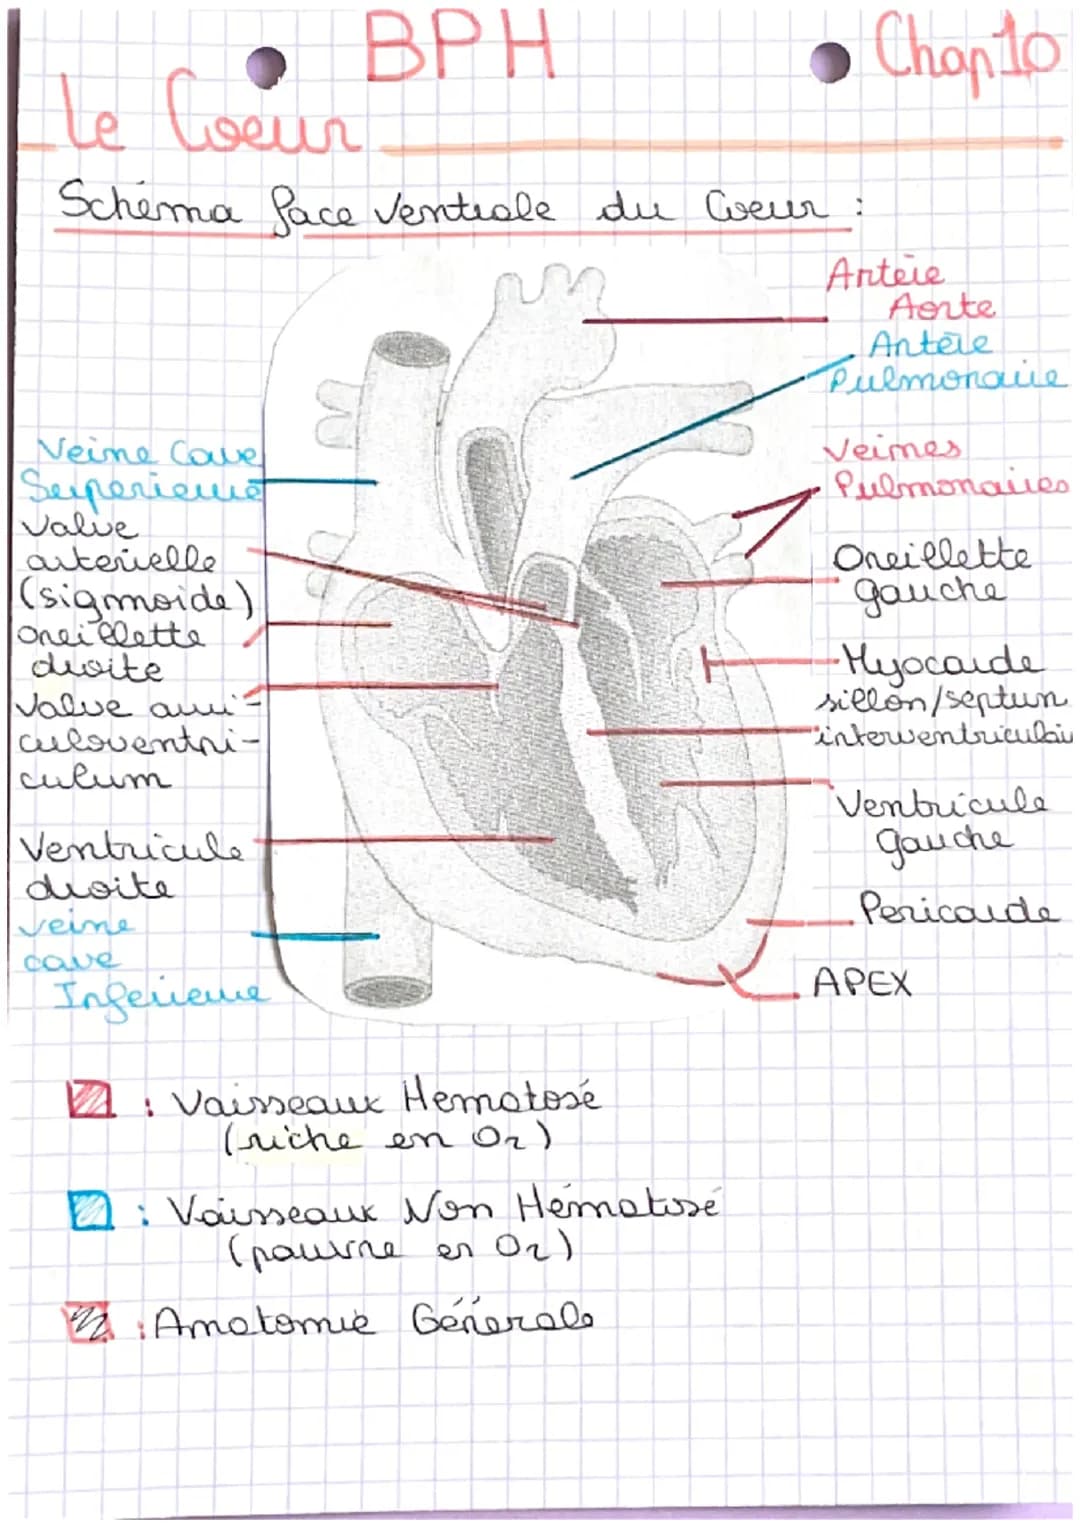 BPH
Chap 10
Le Coeur
Schéma face ventrale du Coeur :
Artère
Aorte
Artère
Pulmonaire
Veine Cave
Superieure
Valve
arterielle
(sigmoide)
oreillette
droite
Valve auri-
culoventri-
culum
Ventricule
droite
veine
cave
Inferieure
Veines
Pulmonaires
Oreillette
gauche
Myocarde
sillon/septum
interventriculair
Ventricule
gauche
Pericarde
APEX
: Vaisseaux Hematosé
(riche en O2)
: Vaisseaux Non Hématosé
(pauvre en O2)
: Anatomie Générale